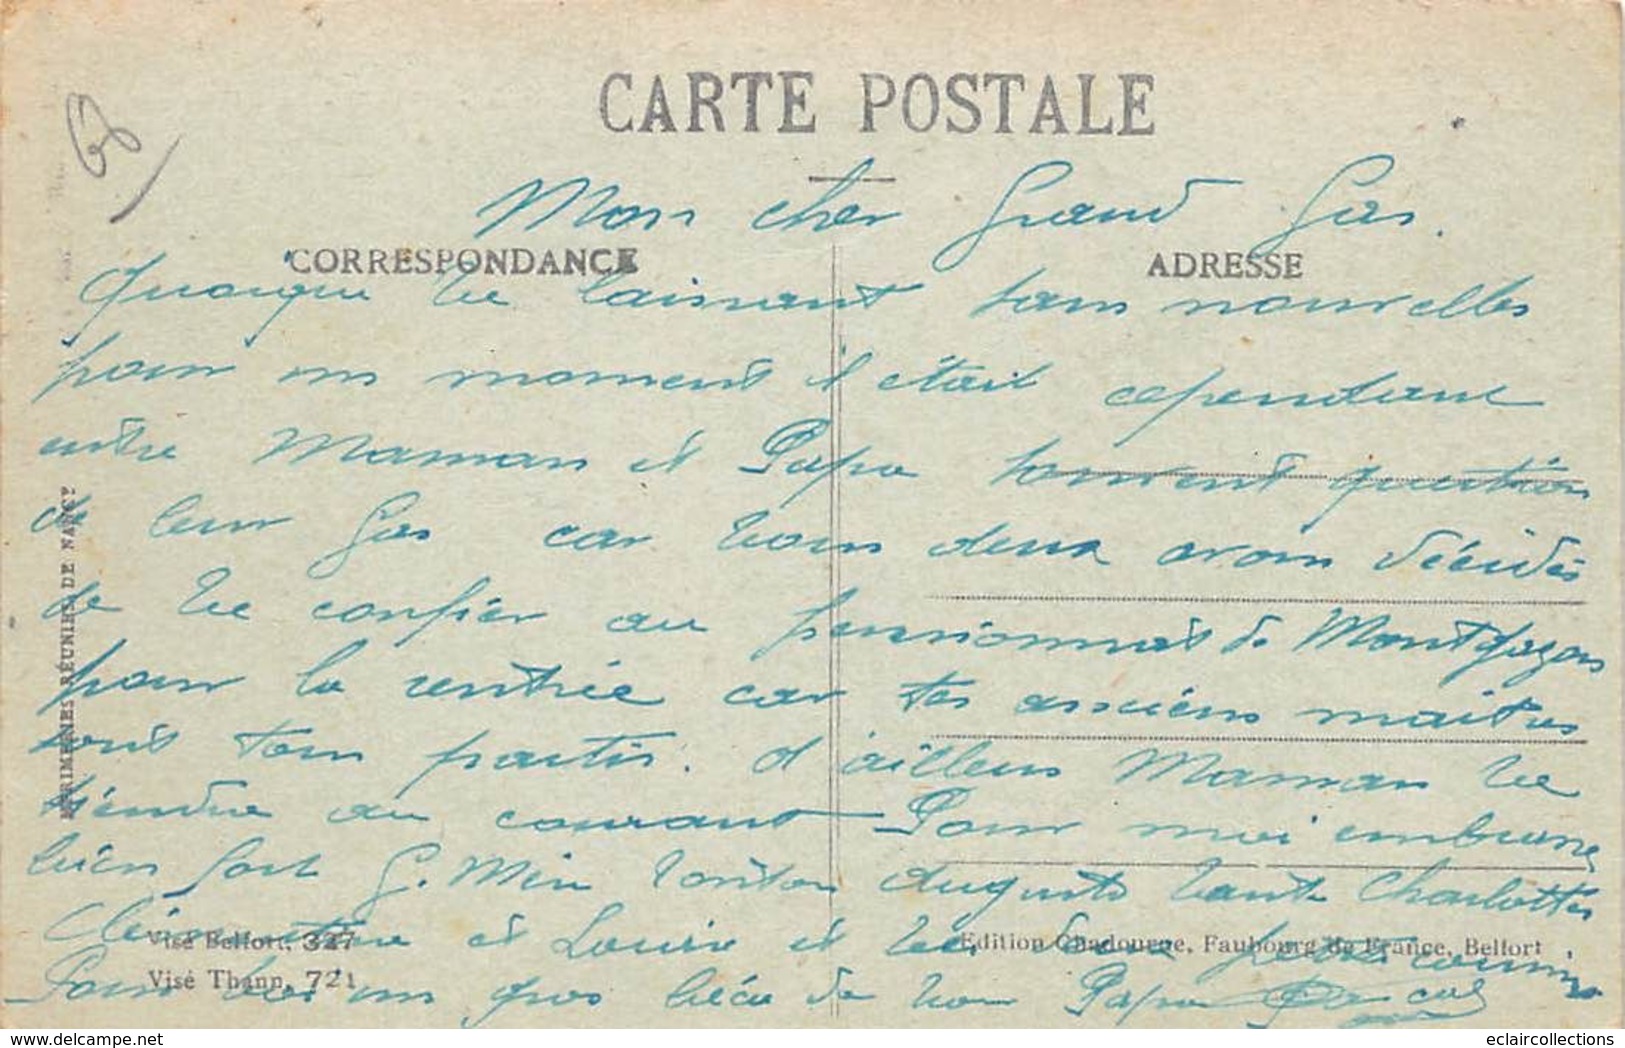 68
CARTE POSTALE
Mon cher Grand Gas.
CORRESPONDANCE
ADRESSE
Quoique te laissant sans nouvelles
pour un moment il était cependant
entre Maman et Papa souvent question
de leur Gas car tous deux avons décidés
de te confier au pensionnat de Montfazon
pour la rentrée car tes anciens maîtres
sont tous partis. d'ailleurs Maman te
tiendra au courant Pour moi embrasse
bien fort G. Min tonton Auguste tante Charlotte
Clémentine et Louis et tes deux petits cousins
Pour toi un gros béco de ton Papa
IMPRIMERIES RÉUNIES DE NANCY
Visé Belfort, 327
Visé Thann, 721
Edition Chadourne, Faubourg de France, Belfort
www.delcampe.net
eclaircollections